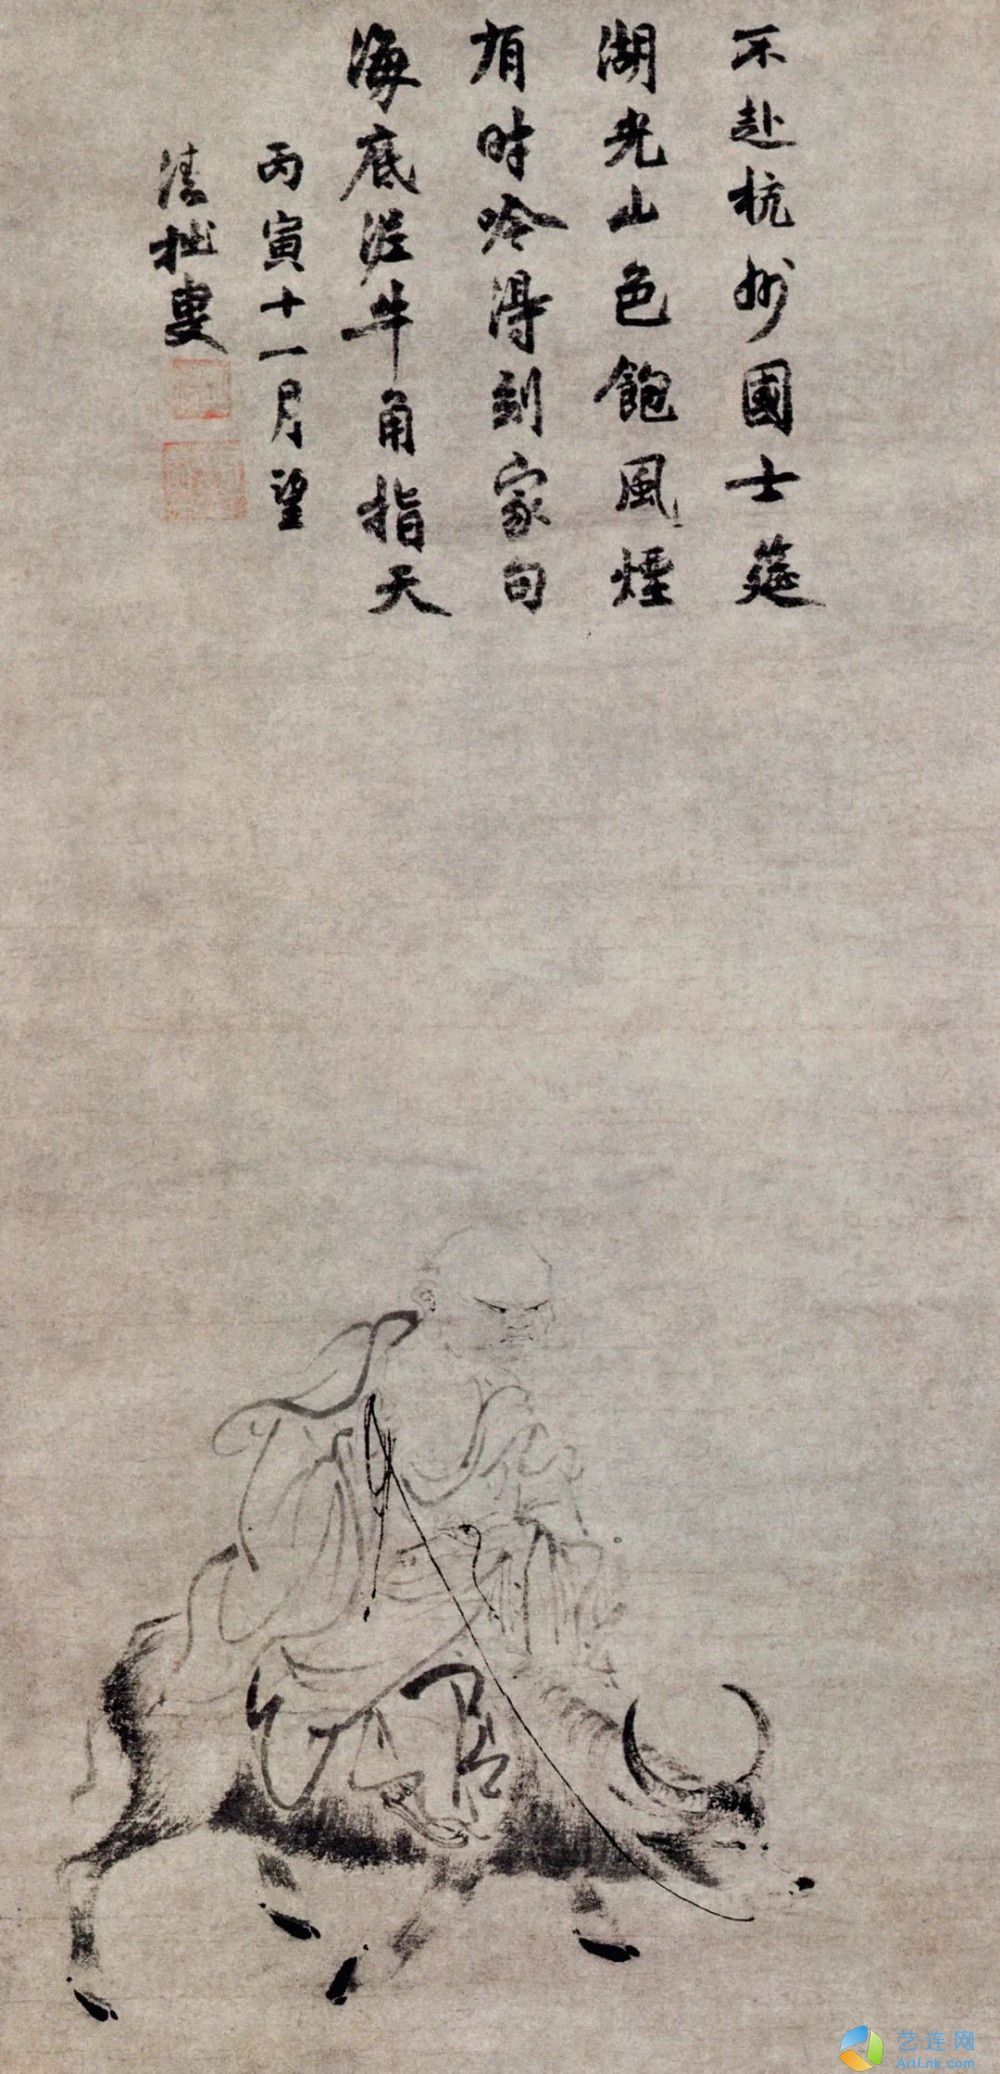 不赴杭州國士筵
湖光山色飽風煙
有時吟得到家句
海底泥牛角指天
丙寅十一月望
清拙叟
艺连网
ArtLnk.com